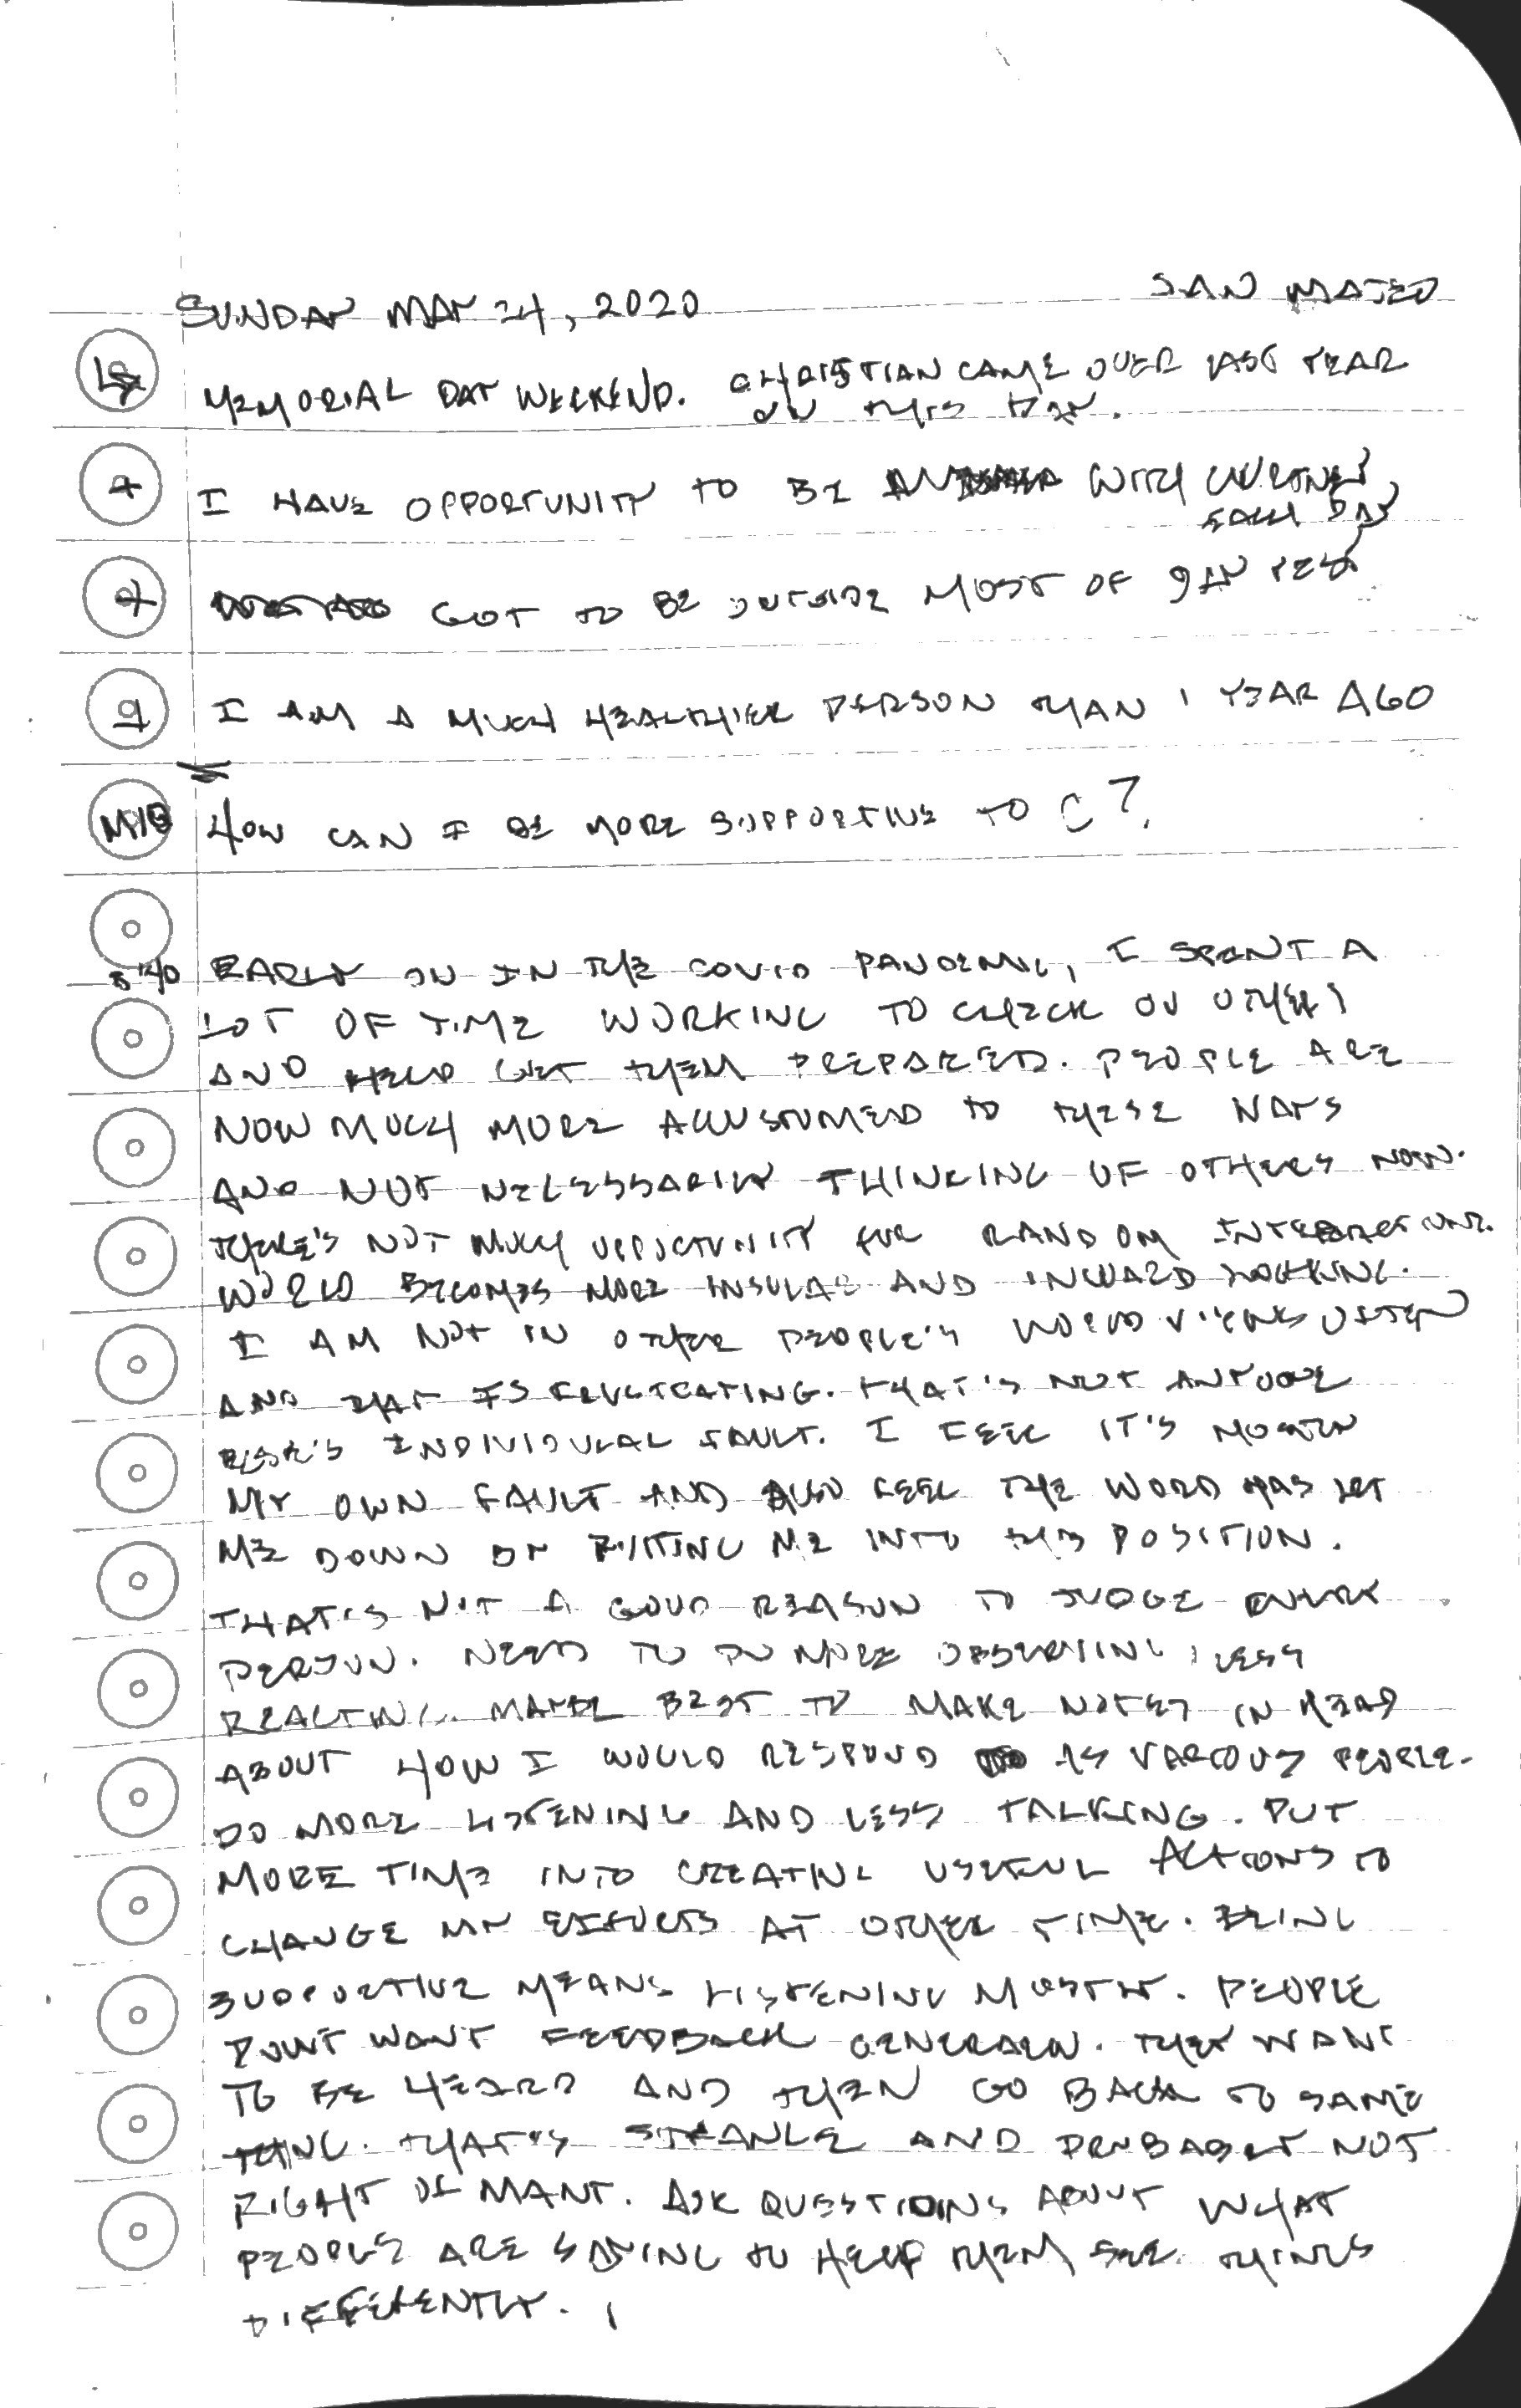 SUNDAY MAY 24, 2020
SAN MATEO
LY MEMORIAL DAY WEEKEND. CHRISTIAN CAME OVER LAST YEAR
ON THIS DAY.
I HAVE OPPORTUNITY TO BE WITH COURTNEY
EACH DAY
GOT TO BE OUTSIDE MOST OF DAY YEST
I AM A MUCH HEALTHIER PERSON THAN 1 YEAR AGO
HOW CAN I BE MORE SUPPORTIVE TO C?
EARLY ON IN THE COVID PANDEMIC, I SPENT A
LOT OF TIME WORKING TO CHECK ON OTHERS
AND HELP GET THEM PREPARED. PEOPLE ARE
NOW MUCH MORE ACCUSTOMED TO THESE WAYS
AND NOT NECESSARILY THINKING OF OTHERS NOW.
THERE'S NOT MUCH OPPORTUNITY FOR RANDOM INTERACTIONS.
WORLD BECOMES MORE INSULAR AND INWARD LOOKING.
I AM NOT IN OTHER PEOPLE'S WORLD VIEWS OFTEN
AND THAT IS FRUSTRATING. THAT'S NOT ANYONE
ELSE'S INDIVIDUAL FAULT. I FEEL IT'S MOSTLY
MY OWN FAULT AND ALSO FEEL THE WORLD HAS LET
ME DOWN BY PUTTING ME INTO THIS POSITION.
THAT'S NOT A GOOD REASON TO JUDGE
PERSON. NEED TO DO MORE OBSERVING, LESS
REACTING. MAYBE BEST TO MAKE NOTES IN HEAD
ABOUT HOW I WOULD RESPOND AS VARIOUS PEOPLE.
DO MORE LISTENING AND LESS TALKING. PUT
MORE TIME INTO CREATING USEFUL ACTIONS TO
CHANGE MY EFFORTS AT OTHER TIME. BEING
SUPPORTIVE MEANS LISTENING MOSTLY. PEOPLE
DON'T WANT FEEDBACK GENERALLY. THEY WANT
TO BE HEARD AND THEN GO BACK TO SAME
THING. THAT'S STRANGE AND PROBABLY NOT
RIGHT OF MANY. ASK QUESTIONS ABOUT WHAT
PEOPLE ARE SAYING TO HELP THEM SEE THINGS
DIFFERENTLY.